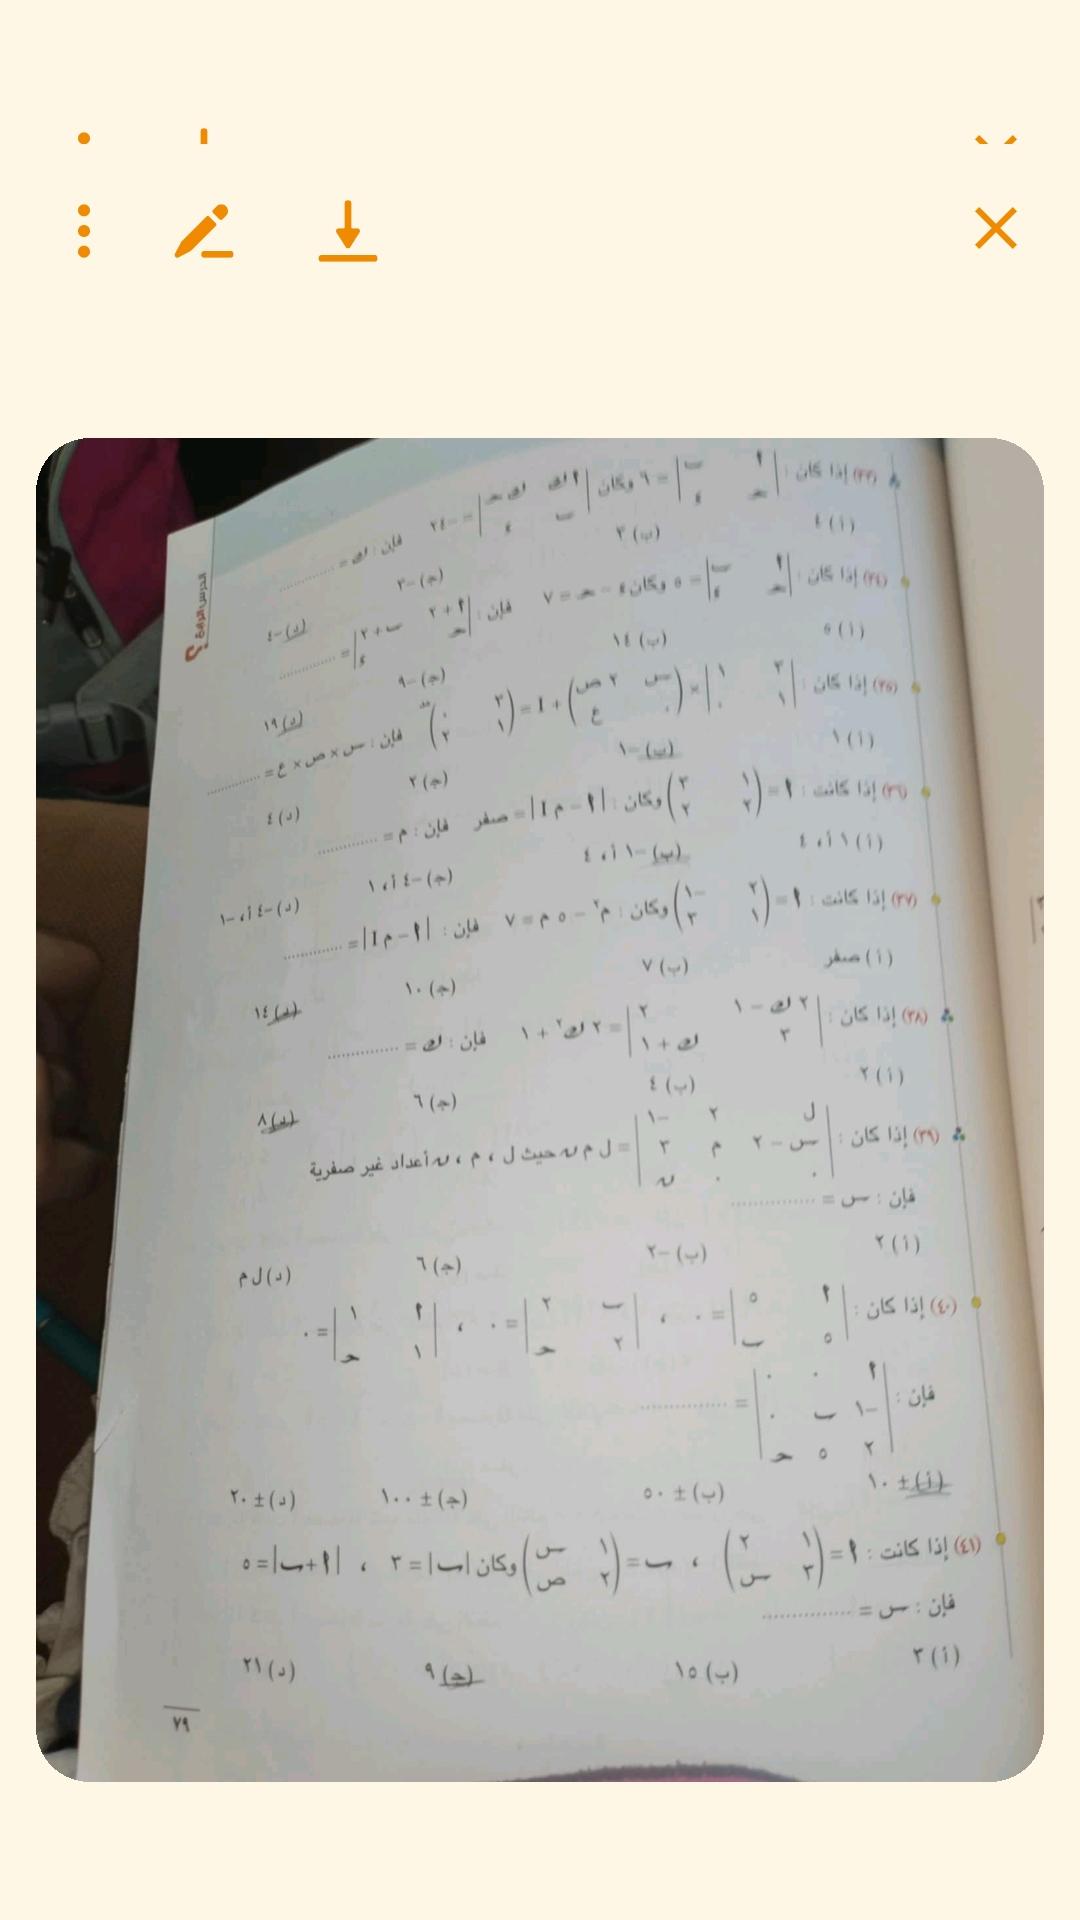 الدرس الرابع
(٣٣) إذا كان : | أ ب ، حـ ء | = ٦ وكان | أ ك ك حـ ، ب ء | = -٢٤ فإن : ك = ..............
(أ) ٤ (ب) ٣ (جـ) -٣ (د) -٤
(٣٤) إذا كان : | أ ب ، حـ ء | = ٥ وكان ء - حـ = ٧ فإن : | أ + ٢ ب + ٢ ، حـ ء | = ..............
(أ) ٥ (ب) ١٤ (جـ) -٩ (د) ١٩
(٣٥) إذا كان : | ٣ ١ ، ١ ٠ | × ( س ٢ ص ، ٠ ع ) + I = ( ٣ ٠ ، ١ ٢ ) فإن : س × ص × ع = ..............
(أ) ١ (ب) -١ (جـ) ٢ (د) ٤
(٣٦) إذا كانت : أ = ( ١ ٣ ، ٢ ٢ ) وكان : | أ - م I | = صفر فإن : م = ..............
(أ) ١ أ، ٤ (ب) -١ أ، ٤ (جـ) -٤ أ، ١ (د) -٤ أ، -١
(٣٧) إذا كانت : أ = ( ٢ -١ ، ١ ٣ ) وكان : م٢ - ٥ م = ٧ فإن : | أ - م I | = ..............
(أ) صفر (ب) ٧ (جـ) ١٠ (د) ١٤
(٣٨) إذا كان : | ٢ ك - ١ ٢ ، ٣ ك + ١ | = ٢ ك٢ + ١ فإن : ك = ..............
(أ) ٢ (ب) ٤ (جـ) ٦ (د) ٨
(٣٩) إذا كان : | ل ٢ -١ ، س - ٢ م ٣ ، ٠ ٠ ن | = ل م ن حيث ل ، م ، ن أعداد غير صفرية
فإن : س = ..............
(أ) ٢ (ب) -٢ (جـ) ٦ (د) ل م
(٤٠) إذا كان : | أ ٥ ، ٥ ب | = ٠ ، | ب ٢ ، ٢ حـ | = ٠ ، | أ ١ ، ١ حـ | = ٠
فإن : | أ ٠ ٠ ، -١ ب ٠ ، ٢ ٥ حـ | = ..............
(أ) ± ١٠ (ب) ± ٥٠ (جـ) ± ١٠٠ (د) ± ٢٠
(٤١) إذا كانت : أ = ( ١ ٢ ، ٣ س ) ، ب = ( ١ س ، ٢ ص ) وكان |ب| = ٣ ، |أ + ب| = ٥
فإن : س = ..............
(أ) ٣ (ب) ١٥ (جـ) ٩ (د) ٢١
٧٩